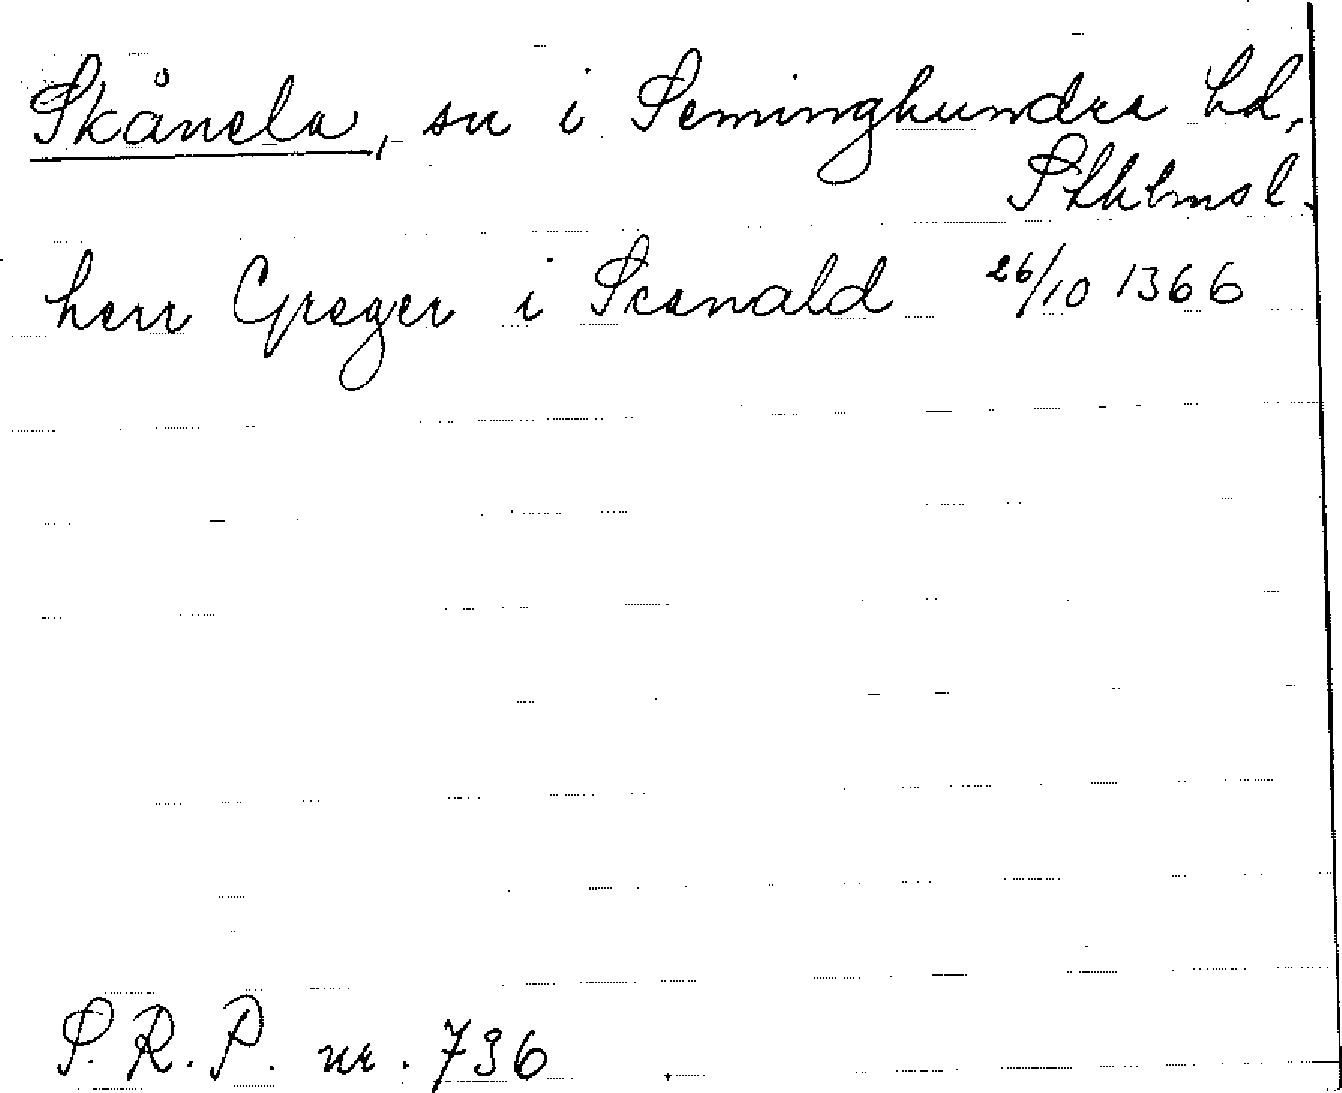 Skånela, sn i Seminghundra hd,
Sthlms l.
herr Greger i Scanald 26/10 1366
S.R.P. nr. 736